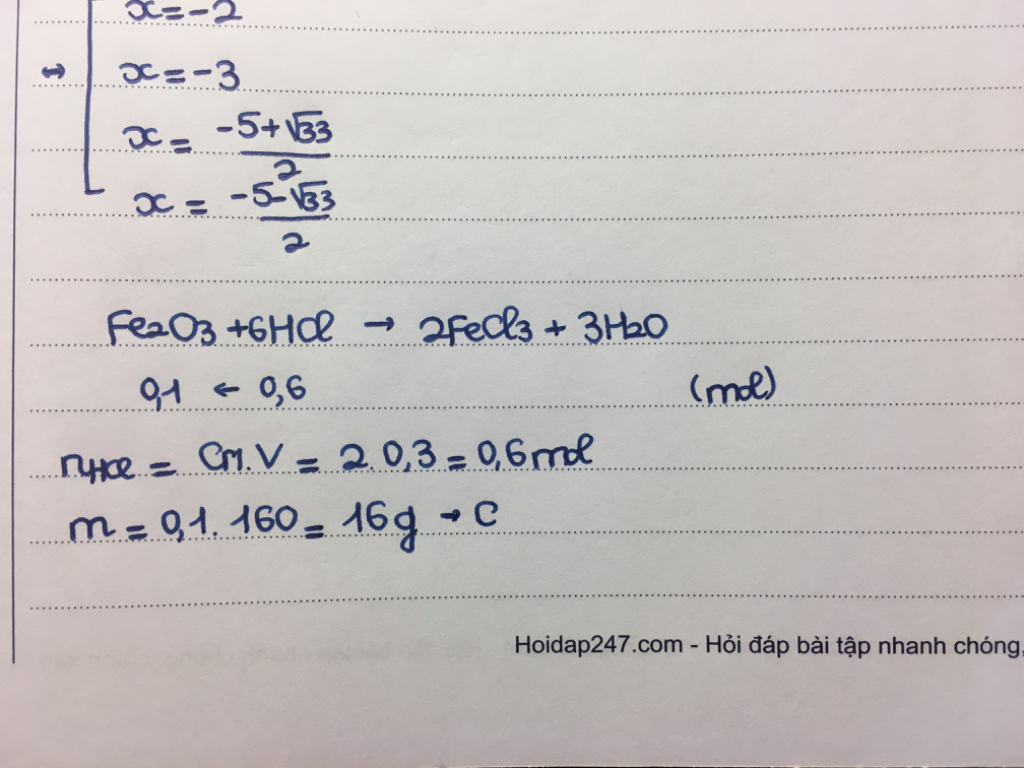 x = -2
↔ x = -3
x = -5+√33 / 2
x = -5-√33 / 2
Fe2O3 + 6HCl → 2FeCl3 + 3H2O
0,1 ← 0,6 (mol)
nHCl = CM.V = 2.0,3 = 0,6 mol
m = 0,1.160 = 16g → C
Hoidap247.com - Hỏi đáp bài tập nhanh chóng,